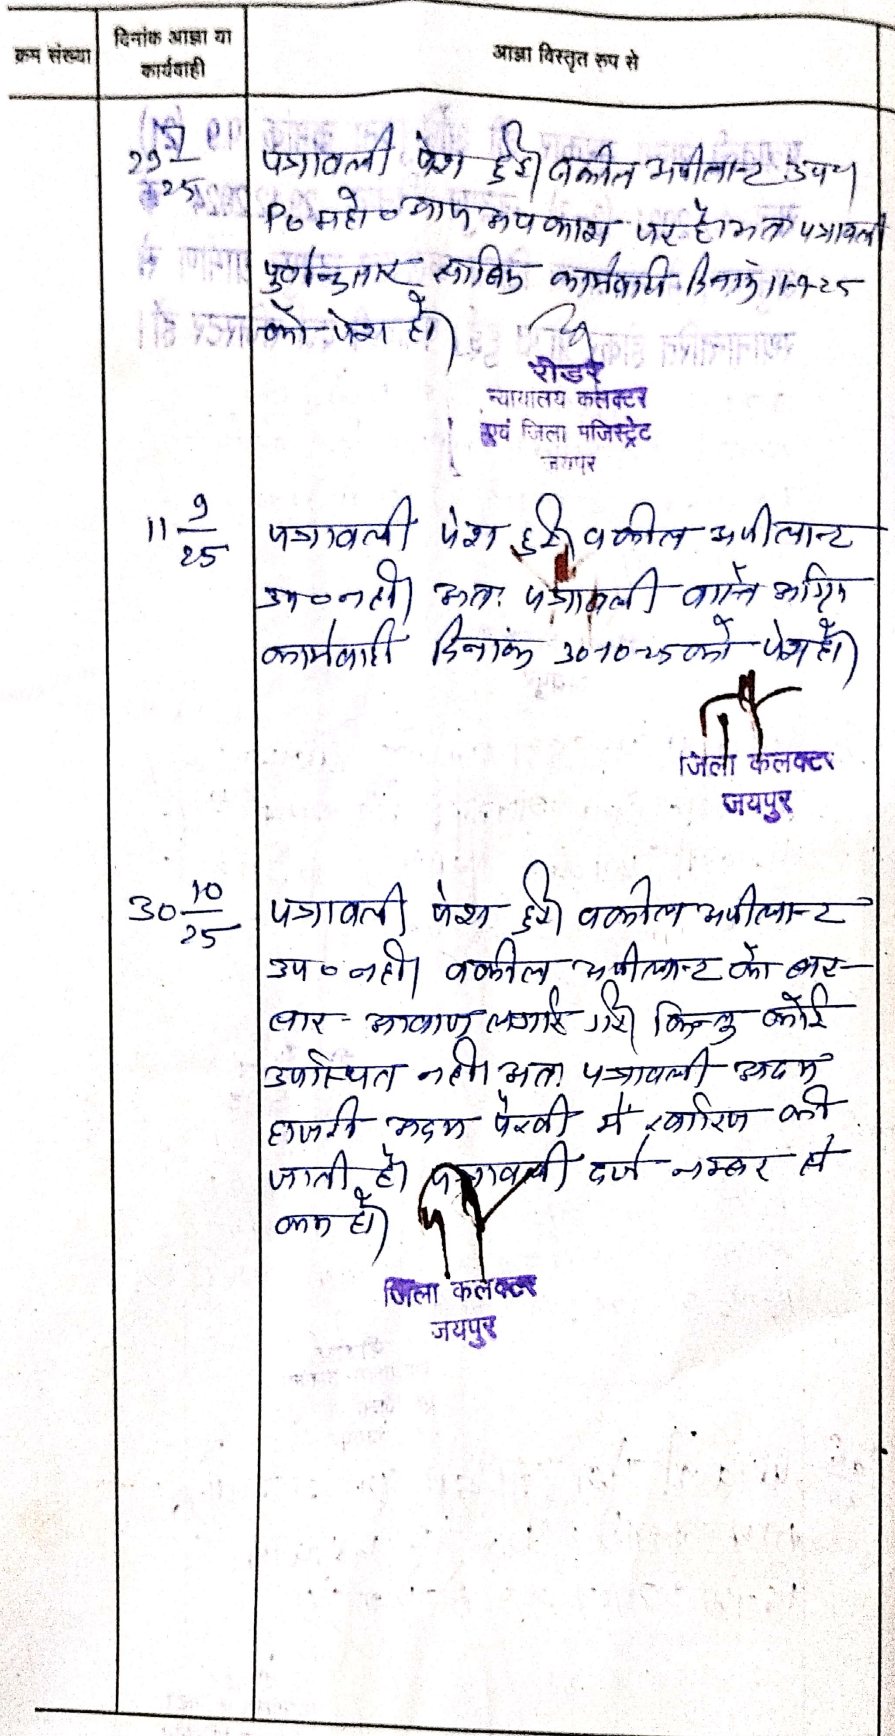 क्रम संख्या
दिनांक आज्ञा या
कार्यवाही
आज्ञा विस्तृत रुप से
29 7/25
पत्रावली पेश हुई। वकील अपीलान्ट उप०।
P० महो० आज अवकाश पर है। अतः पत्रावली
पुर्वानुसार साबिक कार्यवाही दिनांक 11-9-25
को पेश हो।
रीडर
न्यायालय कलक्टर
एवं जिला मजिस्ट्रेट
जयपुर
11 9/25
पत्रावली पेश हुई। वकील अपीलान्ट
उप० नही। अतः पत्रावली वास्ते अग्रिम
कार्यवाही दिनांक 30-10-25 को पेश हो।
जिला कलक्टर
जयपुर
30 10/25
पत्रावली पेश हुई। वकील अपीलान्ट
उप० नही। वकील अपीलान्ट को बार-
बार आवाज लगाई गई। किन्तु कोई
उपस्थित नही। अतः पत्रावली अदम
हाजरी अदम पैरवी में खारिज की
जाती है। पत्रावली दर्ज नम्बर से
कम हो।
जिला कलक्टर
जयपुर